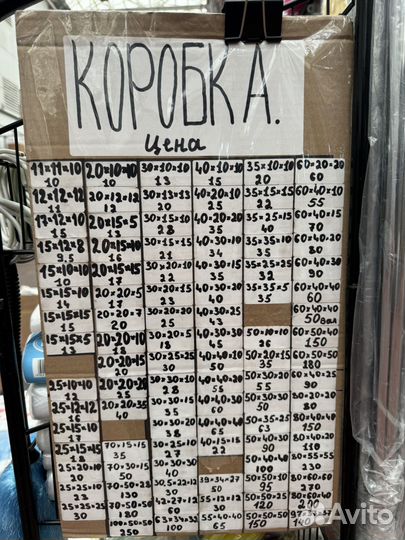 КОРОБКА.
цена
11=11=10
10
12=12=12
11
17=12=10
15
15=12=8
9.5
15=10=10
10
15=15=10
14
15=15=15
15
15=15=5
13
25=10=40
12
25=12=12
16
25=15=10
17
25=15=15
25=20=10
20
25=25=10
22
20=10=10
10
20=12=12
12
20=15=5
13
20=15=10
16
20=15=15
17
20=20=5
17
20=20=7
20
20=20=10
18
20=20=20
25
20=20=35
40
70=15=15
35
70=30=15
50
70=50=28
130
70=50=50
180
100=50=50
250
30=10=10
13
30=13=13
20
30=15=10
28
30=15=15
21
30=20=10
22
30=20=15
23
30=20=20
25
30=20=5
18
30=25=25
30
30=30=10
28
30=30=15
35
30=30=20
38
30=30=30
40
30.5=22=12
30
42=27=12
60
63=34=33
100
40=10=10
15
40=20=10
25
40=20=20
35
40=30=10
34
40=30=15
35
40=30=20
40
40=30=25
43
40=30=30
45
40=40=10
50
40=40=20
55
40=40=30
55
40=40=40
65
40=15=15
22
39=34=27
50
55=12=12
30
55=40=40
65
35=10=10
20
35=15=15
22
35=25=15
40
35=35=10
35
35=25=25
32
35=35=5
35
50=10=10
26
50=20=15
35
50=30=20
55
50=30=30
50
50=35=25
63
50=40=30
90
50=40=40
100
50=50=10
95
50=50=25
120
50=50=50
150
60=20=20
60
60=40=10
55
60=40=15
70
60=40=20
80
60=40=30
90
60=40=40
60
60=40=40
50
60=50=40
150
60=50=50
180
60=40=25
90
80=40=20
80
80=40=40
150
80=40=20
110
80=55=55
230
80=60=60
270
80=60=40
200
140
Avito